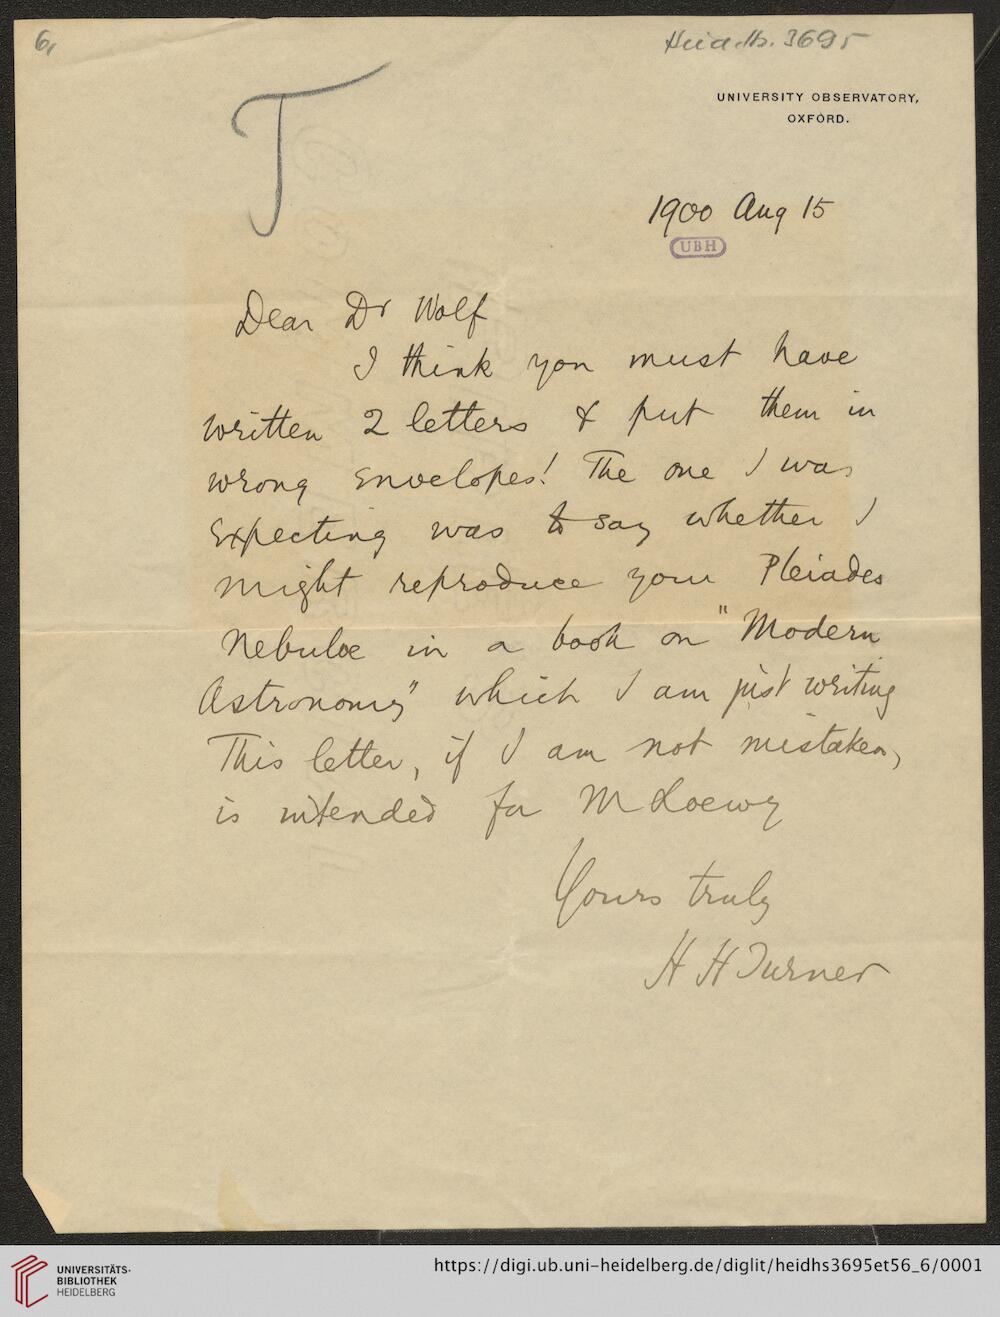 6,
Heid. Hs. 3695
T
UNIVERSITY OBSERVATORY,
OXFORD.
1900 Aug 15
UBH
Dear Dr Wolf
I think you must have
written 2 letters & put them in
wrong envelopes! The one I was
expecting was to say whether I
might reproduce your Pleiades
Nebulae in a book on "Modern
Astronomy" which I am just writing
This letter, if I am not mistaken,
is intended for M Loewy
Yours truly
H H Turner
UNIVERSITÄTS-
BIBLIOTHEK
HEIDELBERG
https://digi.ub.uni-heidelberg.de/diglit/heidhs3695et56_6/0001